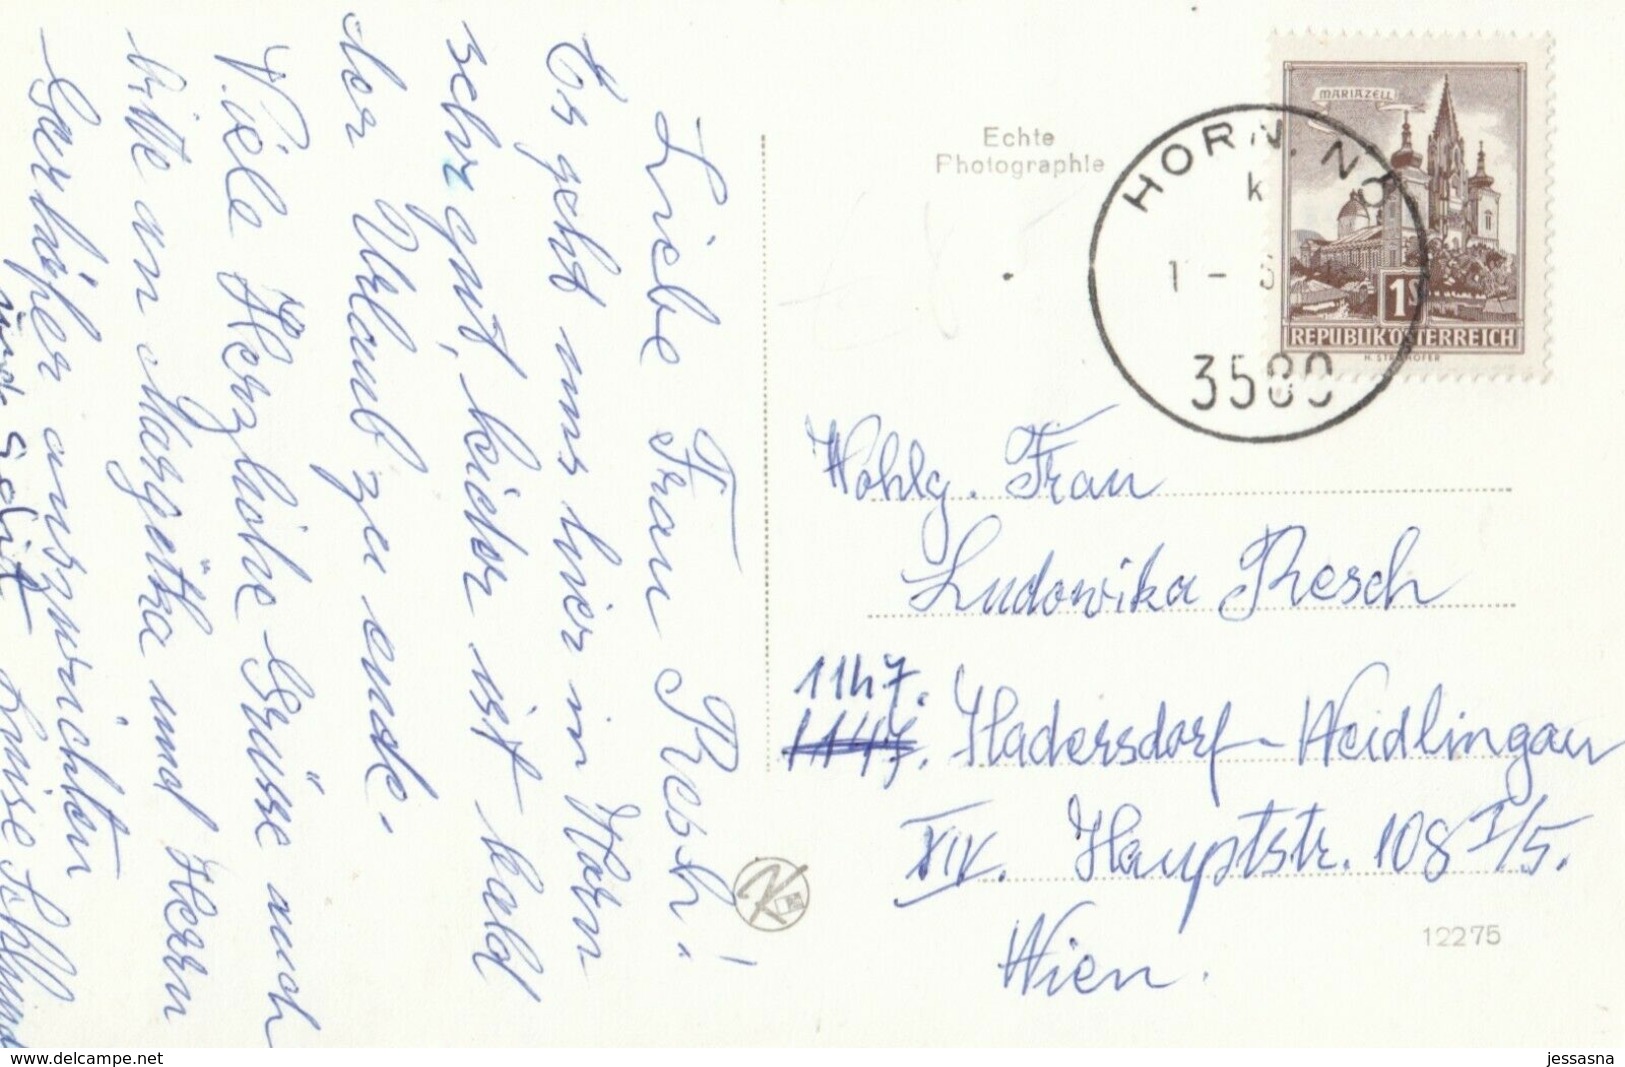 Liebe Frau Resch!
Es geht uns hier in Horn
sehr gut, leider ist bald
der Urlaub zu ende.
Viele Herzliche Grüsse auch
bitte an Margitka und Herrn
auszurichten
Luise
Echte
Photographie
MARIAZELL
1S
REPUBLIK ÖSTERREICH
HORN, NÖ
k
1 -
3580
Wohlg. Frau
Ludowika Resch
1147.
1147. Hadersdorf-Weidlingau
XIV. Hauptstr. 108 I/5.
Wien.
K
12275
www.delcampe.net
jessasna